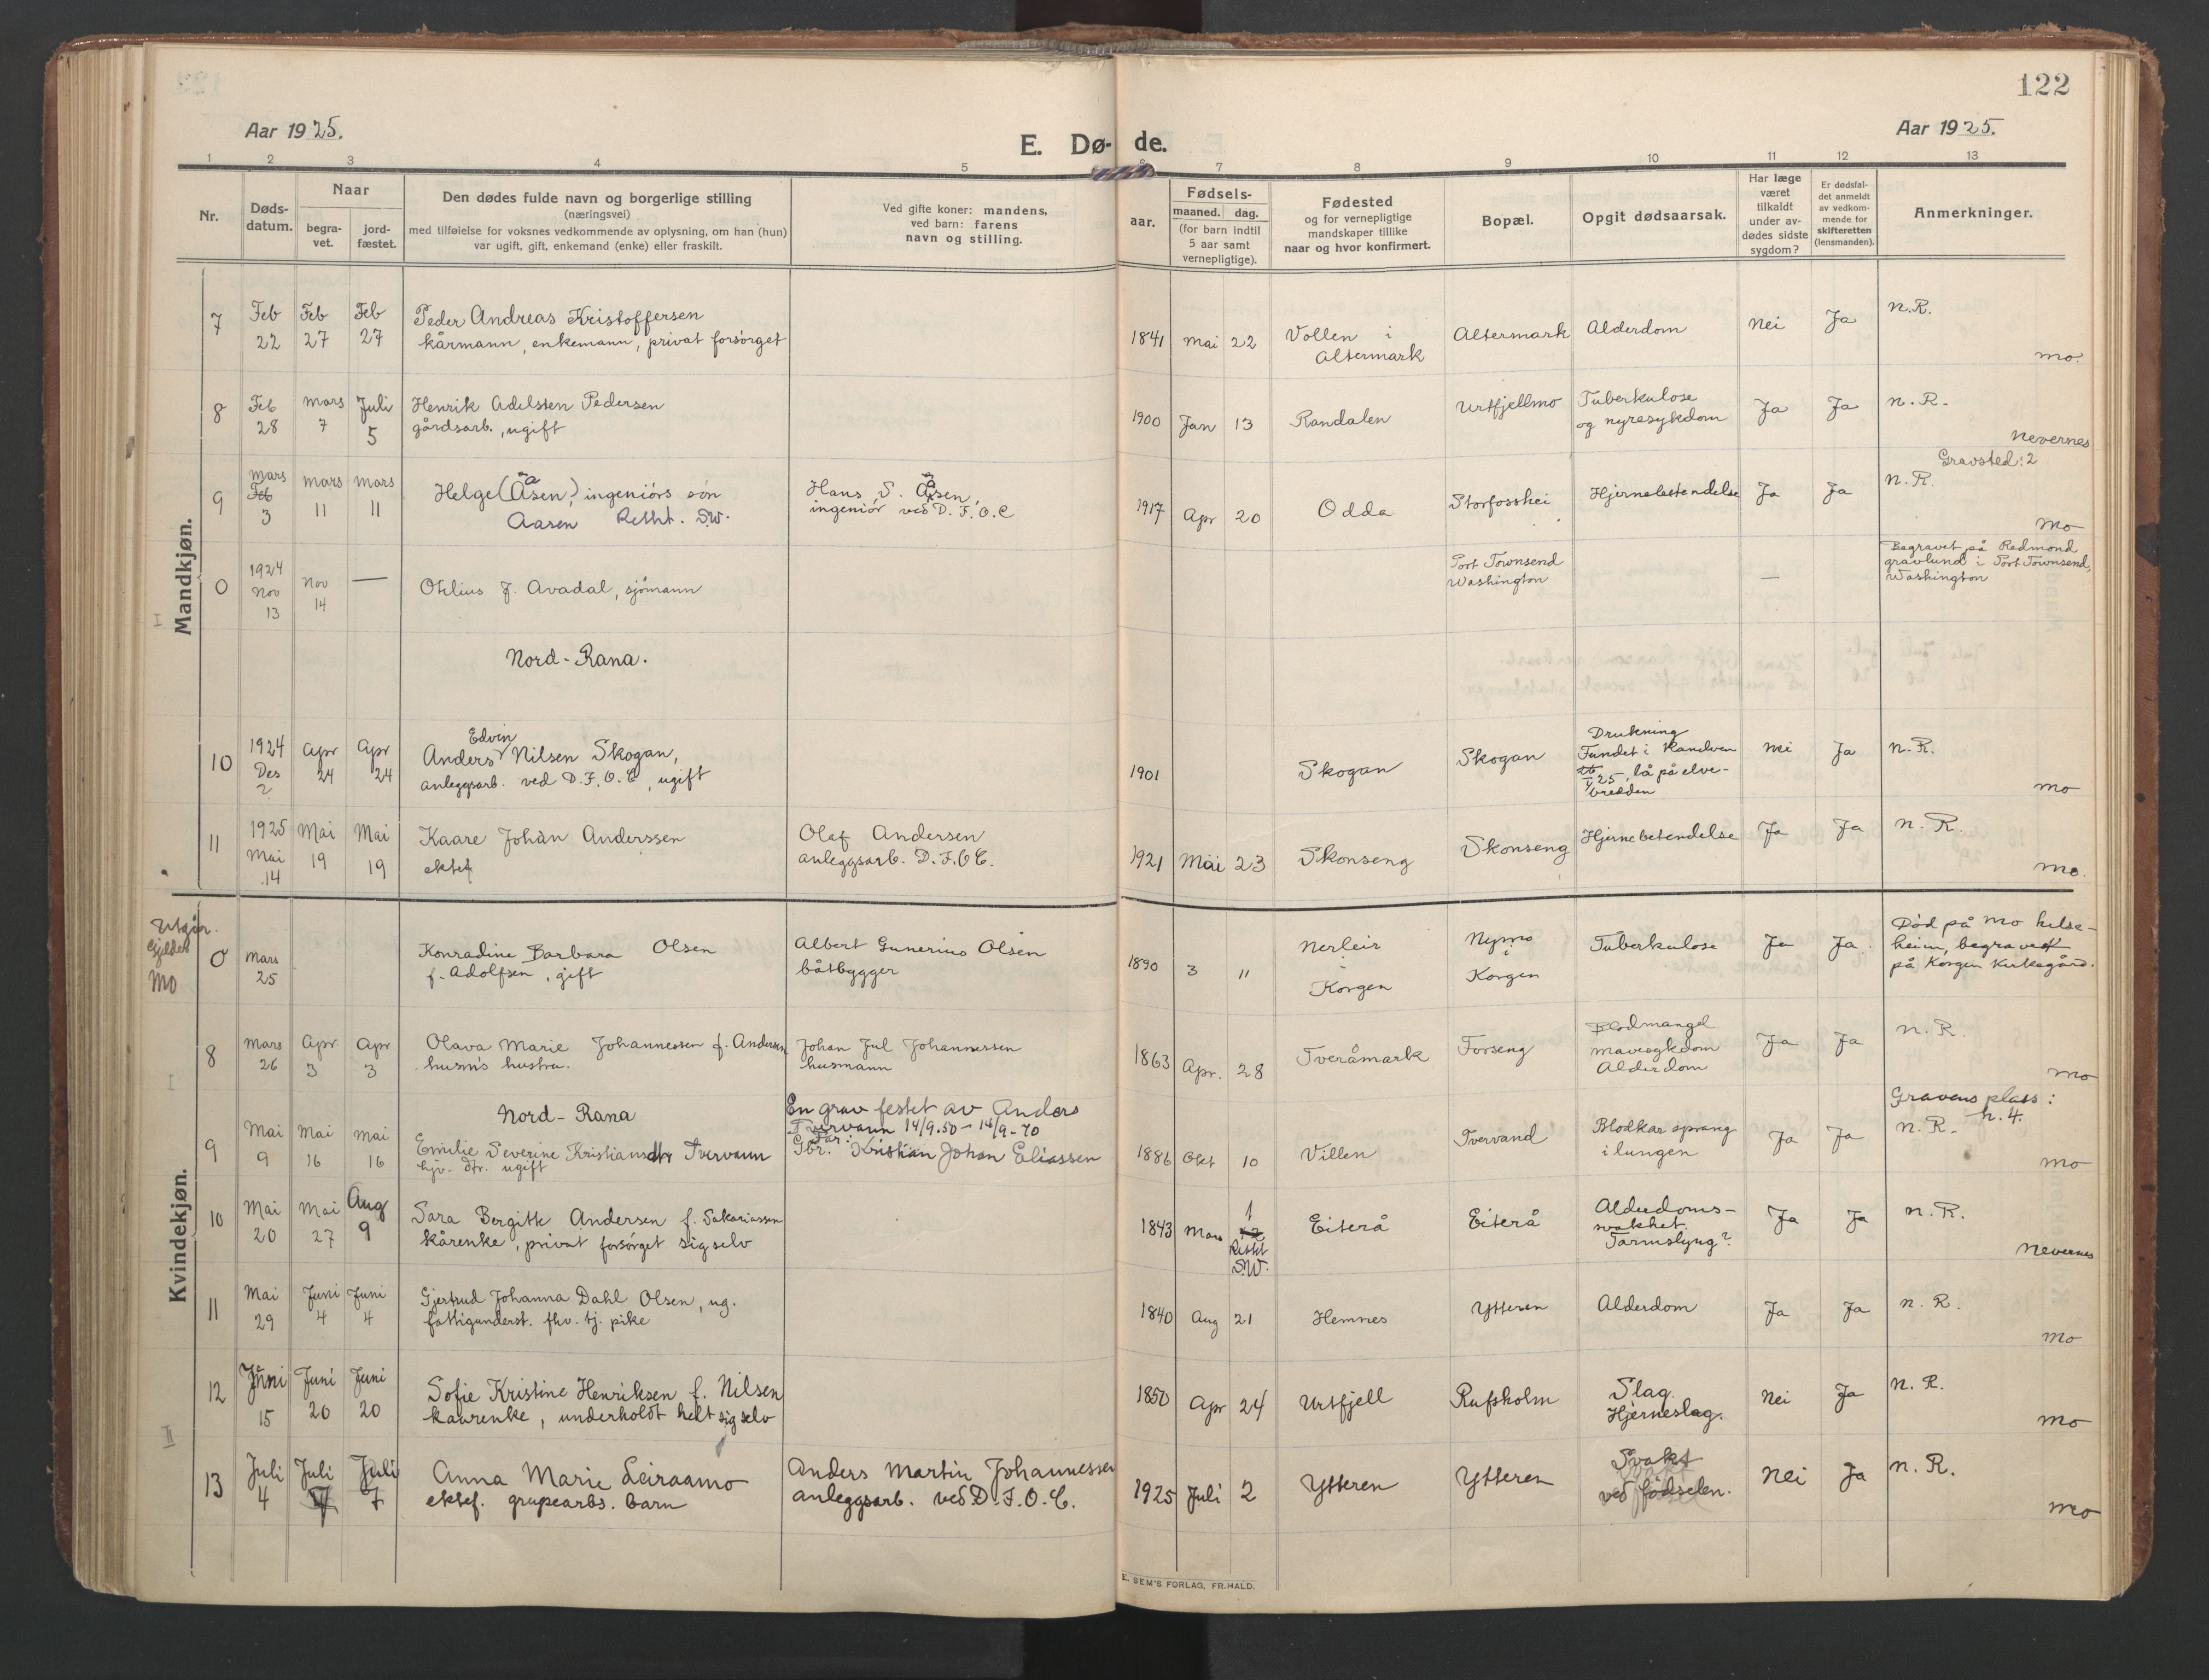 122
Aar 1925.
E. Dø- de.
Aar 1925.
1 2 3 4 5 7 8 9 10 11 12 13
Nr.
Døds-
datum.
Naar
begra-
vet.
jord-
fæstet.
Den dødes fulde navn og borgerlige stilling
(næringsvei)
med tilføielse for voksnes vedkommende av oplysning, om han (hun)
var ugift, gift, enkemand (enke) eller fraskilt.
Ved gifte koner: mandens,
ved barn: farens
navn og stilling.
Fødsels-
aar.
maaned. dag.
(for barn indtil
5 aar samt
vernepligtige).
Fødested
og for vernepligtige
mandskaper tillike
naar og hvor konfirmert.
Bopæl.
Opgit dødsaarsak.
Har læge
været
tilkaldt
under av-
dødes sidste
sygdom?
Er dødsfal-
det anmeldt
av vedkom-
mende for
skifteretten
(lensmanden).
Anmerkninger.
Mandkjøn.
7 Feb 22 Feb 27 Feb 27
Peder Andreas Kristoffersen
kårmann, enkemann, privat forsørget
1841 Mai 22 Vollen i
Altermark
Altermark Alderdom Nei Ja N.R.
Mo.
8 Feb 28 Mars 7 Juli 5
Henrik Adelsten Pedersen
gårdsarb., ugift
1900 Jan 13 Randalen Urtfjellmo Tuberkulose
og nyresykdom
Ja Ja N.R.
Nevernes
Gravsted: 2
9 Mars
Feb
3 Mars 11 Mars 11
Helge (Åsen,) ingeniørs søn
Aasen Rettet. S.W.
Hans S. Åsen,
ingeniør ved D.F.O.C
1917 Apr 20 Odda Storfosshei Hjernebetendelse Ja Ja N.R.
Mo
0 1924
Nov
13 Nov 14 —
Otilius J. Avadal, sjømann
Port Townsend
Washington
—
Begravet på Redmond
gravlund i Port Townsend,
Washington
I
Nord-Rana.
10 1924
Des
2 Apr 24 Apr 24
Edvin
Anders Nilsen Skogan,
anleggsarb. ved D.F.O.C, ugift
1901 Skogan Skogan Drukning
Fundet i
25, lå på elve-
bredden
Nei Ja N.R.
Mo
11 1925
Mai
14 Mai 19 Mai 19
Kaare Johan Anderssen
ektef
Olaf Andersen
anleggsarb. D.F.O.C.
1921 Mai 23 Skonseng Skonseng Hjernebetendelse Ja Ja N.R.
Mo.
Kvindekjøn.
Utgår.
gjelder
Mo
0 Mars 25
Konradine Barbara Olsen
f. Adolfsen, gift
Albert Gunerius Olsen
båtbygger
1890 3 11 Nerleir
i
Korgen
Nymo
i
Korgen
Tuberkulose Ja Ja.
Død på Mo helse-
heim, begravet
på Korgen Kirkegård.
I
8 Mars 26 Apr 3 Apr 3
Olava Marie Johannessen f. Andersen
husm's hustru.
Johan Jul Johannessen
husmann
1863 Apr. 28 Tveråmark Forseng Blodmangel
Mavesykdom
Alderdom
Ja Ja N.R.
Mo
Nord-Rana
En grav festet av Anders
Tvervann 14/9.50 - 14/9-70
Gravens plass:
n. 4.
9 Mai 9 Mai 16 Mai 16
Emilie Severine Kristiansdtr Tvervann
hjv. dtr. ugift
Far:
Gbr. Kristian Johan Eliassen
1886 Okt 10 Villen Tvervand Blodkar sprang
i lungen
Ja Ja N.R.
Mo
10 Mai 20 Mai 27 Aug 9
Sara Bergitte Andersen f. Sakariassen
kårenke, privat forsørget sig selv
1843 Mars 1
12
Rettet
S.W.
Eiterå Eiterå Alderdoms-
svakhet.
Tarmslyng?
Ja Ja N.R.
Nevernes
11 Mai 29 Juni 4 Juni 4
Gjertrud Johanna Dahl Olsen, ug.
fattigunderst. fhv. tj. pike
1840 Aug 21 Hemnes Ytteren Alderdom Ja Ja N.R.
Mo
12 Juni 15 Juni 20 Juni 20
Sofie Kristine Henriksen f. Nilsen
kaarenke, underholdt helt sig selv
1850 Apr 24 Urtfjell Rufsholm Slag.
Hjerneslag.
Nei Ja N.R.
Mo
II
13 Juli 4 Juli 7 Juli 7
Anna Marie Leiraamo
ektef. grupearbs. barn
Anders Martin Johannessen
anleggsarb. ved D.F.O.C.
1925 Juli 2 Ytteren Ytteren Svakt
ved fødselen.
Nei Ja N.R.
Mo
E. SEM'S FORLAG, FR.HALD.